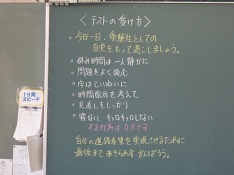 〈テストの受け方〉
・今日一日、受験生としての
自覚をもって過ごしましょう。
・休み時間は一人静かに
・問題をよく読む
・字はていねいに
・時間配分を考えて
・見直しもしっかり
・キョロキョロしない
不正行為は0点です
自分の進路希望を実現させるために
最後まであきらめずがんばろう。
1分間
スピーチ